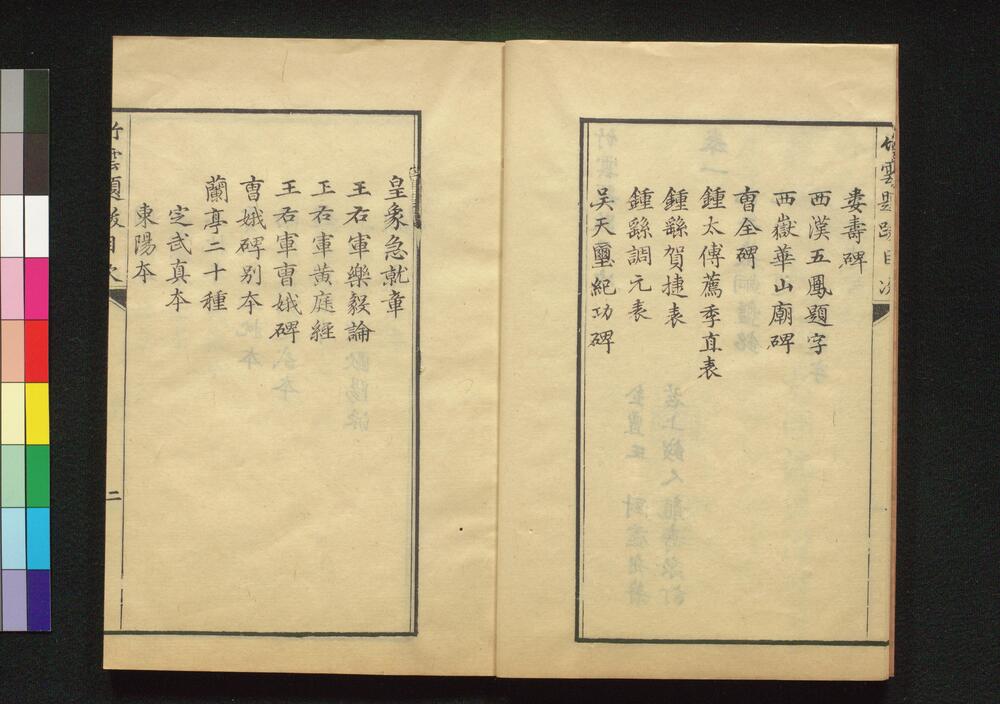 竹雲題跋目次
婁壽碑
西漢五鳳題字
西嶽華山廟碑
曹全碑
鍾太傅薦季直表
鍾繇賀捷表
鍾繇調元表
吴天璽紀功碑
皇象急就章
王右軍樂毅論
王右軍黄庭經
王右軍曹娥碑
曹娥碑别本
蘭亭二十種
定武真本
東陽本
竹雲題跋目次
二